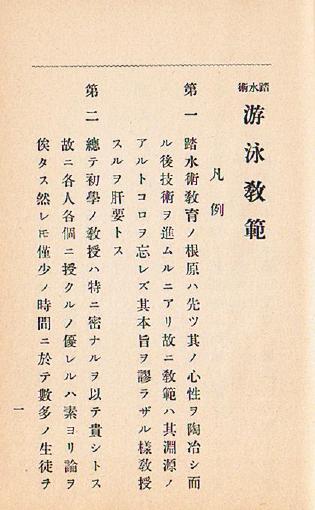 踏水術
游泳敎範
凡例
第一 踏水術敎育ノ根原ハ先ツ其ノ心性ヲ陶冶シ而
ル後技術ヲ進ムルニアリ故ニ敎範ハ其淵源ノ
アルトコロヲ忘レズ其本旨ヲ謬ラザル樣敎授
スルヲ肝要トス
第二 總テ初學ノ敎授ハ特ニ密ナルヲ以テ貴シトス
故ニ各人各個ニ授クルノ優レルハ素ヨリ論ヲ
俟タス然レモ僅少ノ時間ニ於テ數多ノ生徒ヲ
一